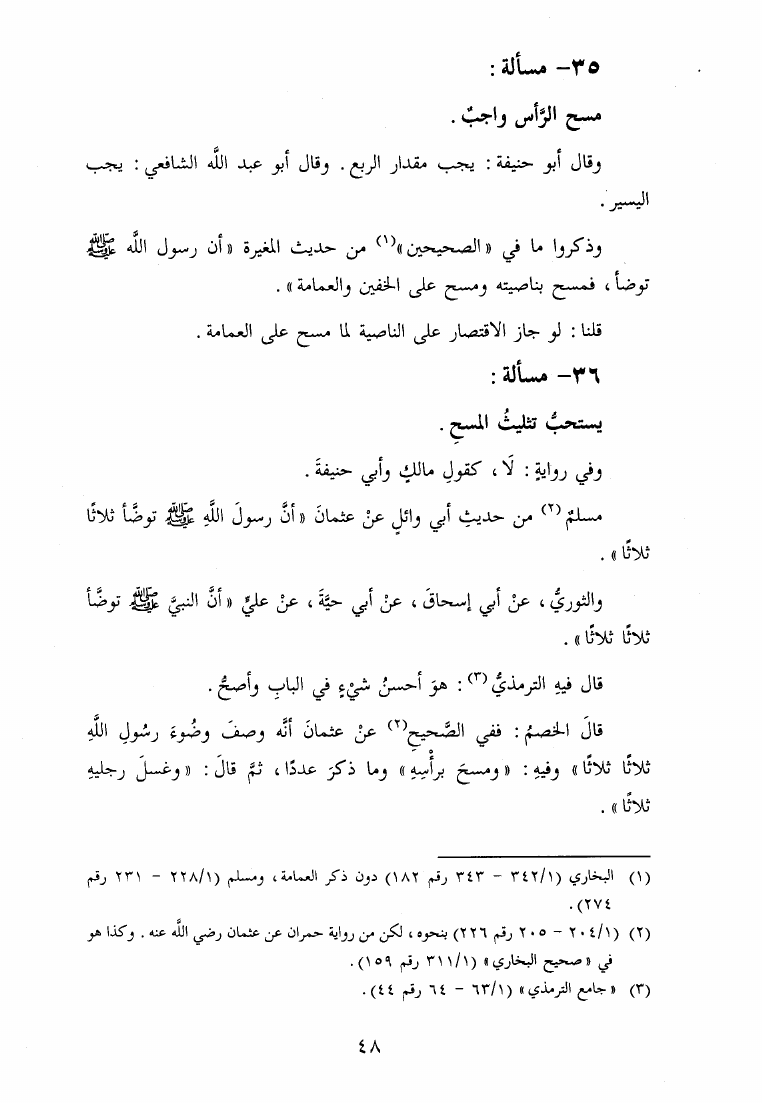 ٣٥- مسألة :
مسح الرَّأس واجبٌ .
وقال أبو حنيفة : يجب مقدار الربع . وقال أبو عبد اللَّه الشافعي : يجب
اليسير .
وذكروا ما في « الصحيحين »(١) من حديث المغيرة « أن رسول اللَّه ﷺ
توضأ ، فمسح بناصيته ومسح على الخفين والعمامة » .
قلنا : لو جاز الاقتصار على الناصية لما مسح على العمامة .
٣٦- مسألة :
يستحبُّ تثليثُ المسحِ .
وفي روايةٍ : لَا ، كقولِ مالكٍ وأبي حنيفةَ .
مسلمٌ(٢) من حديثِ أبي وائلٍ عنْ عثمانَ « أنَّ رسولَ اللَّهِ ﷺ توضَّأ ثلاثًا
ثلاثًا » .
والثوريُّ ، عنْ أبي إسحاقَ ، عنْ أبي حيَّةَ ، عنْ عليٍّ « أنَّ النبيَّ ﷺ توضَّأ
ثلاثًا ثلاثًا » .
قال فيهِ الترمذيُّ(٣) : هوَ أحسنُ شيْءٍ في البابِ وأصحُّ .
قالَ الخصمُ : ففي الصَّحيحِ(٢) عنْ عثمانَ أنَّه وصفَ وضُوءَ رسُولِ اللَّهِ
ثلاثًا ثلاثًا » وفيهِ : « ومسحَ برأْسِهِ » وما ذكرَ عددًا ، ثمَّ قالَ : « وغسلَ رجليهِ
ثلاثًا » .
(١) البخاري (٣٤٢/١ - ٣٤٣ رقم ١٨٢) دون ذكر العمامة ، ومسلم (٢٢٨/١ - ٢٣١ رقم
٢٧٤).
(٢) (٢٠٤/١ - ٢٠٥ رقم ٢٢٦) بنحوه ، لكن من رواية حمران عن عثمان رضي اللَّه عنه . وكذا هو
في « صحيح البخاري » (٣١١/١ رقم ١٥٩).
(٣) « جامع الترمذي » (٦٣/١ - ٦٤ رقم ٤٤).
٤٨